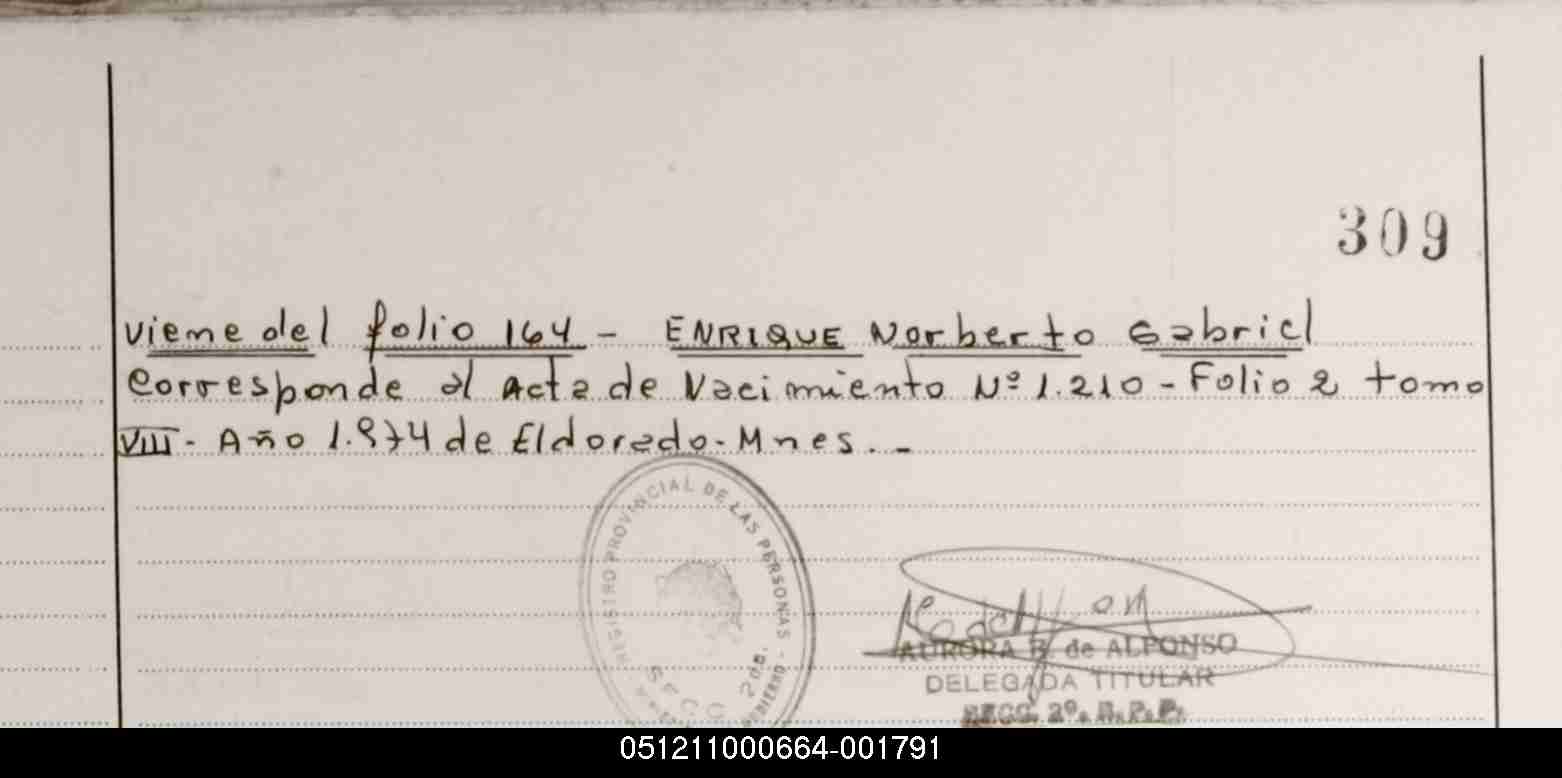 309
Viene del folio 164 - ENRIQUE Norberto Gabriel
Corresponde al Acta de Nacimiento Nº 1.210 - Folio 2 tomo
VIII - Año 1.974 de Eldorado - Mnes. -
REGISTRO PROVINCIAL DE LAS PERSONAS -
SECC. 2da.
AURORA B. de ALFONSO
DELEGADA TITULAR
SECC. 2º. R.P.P.
051211000664-001791